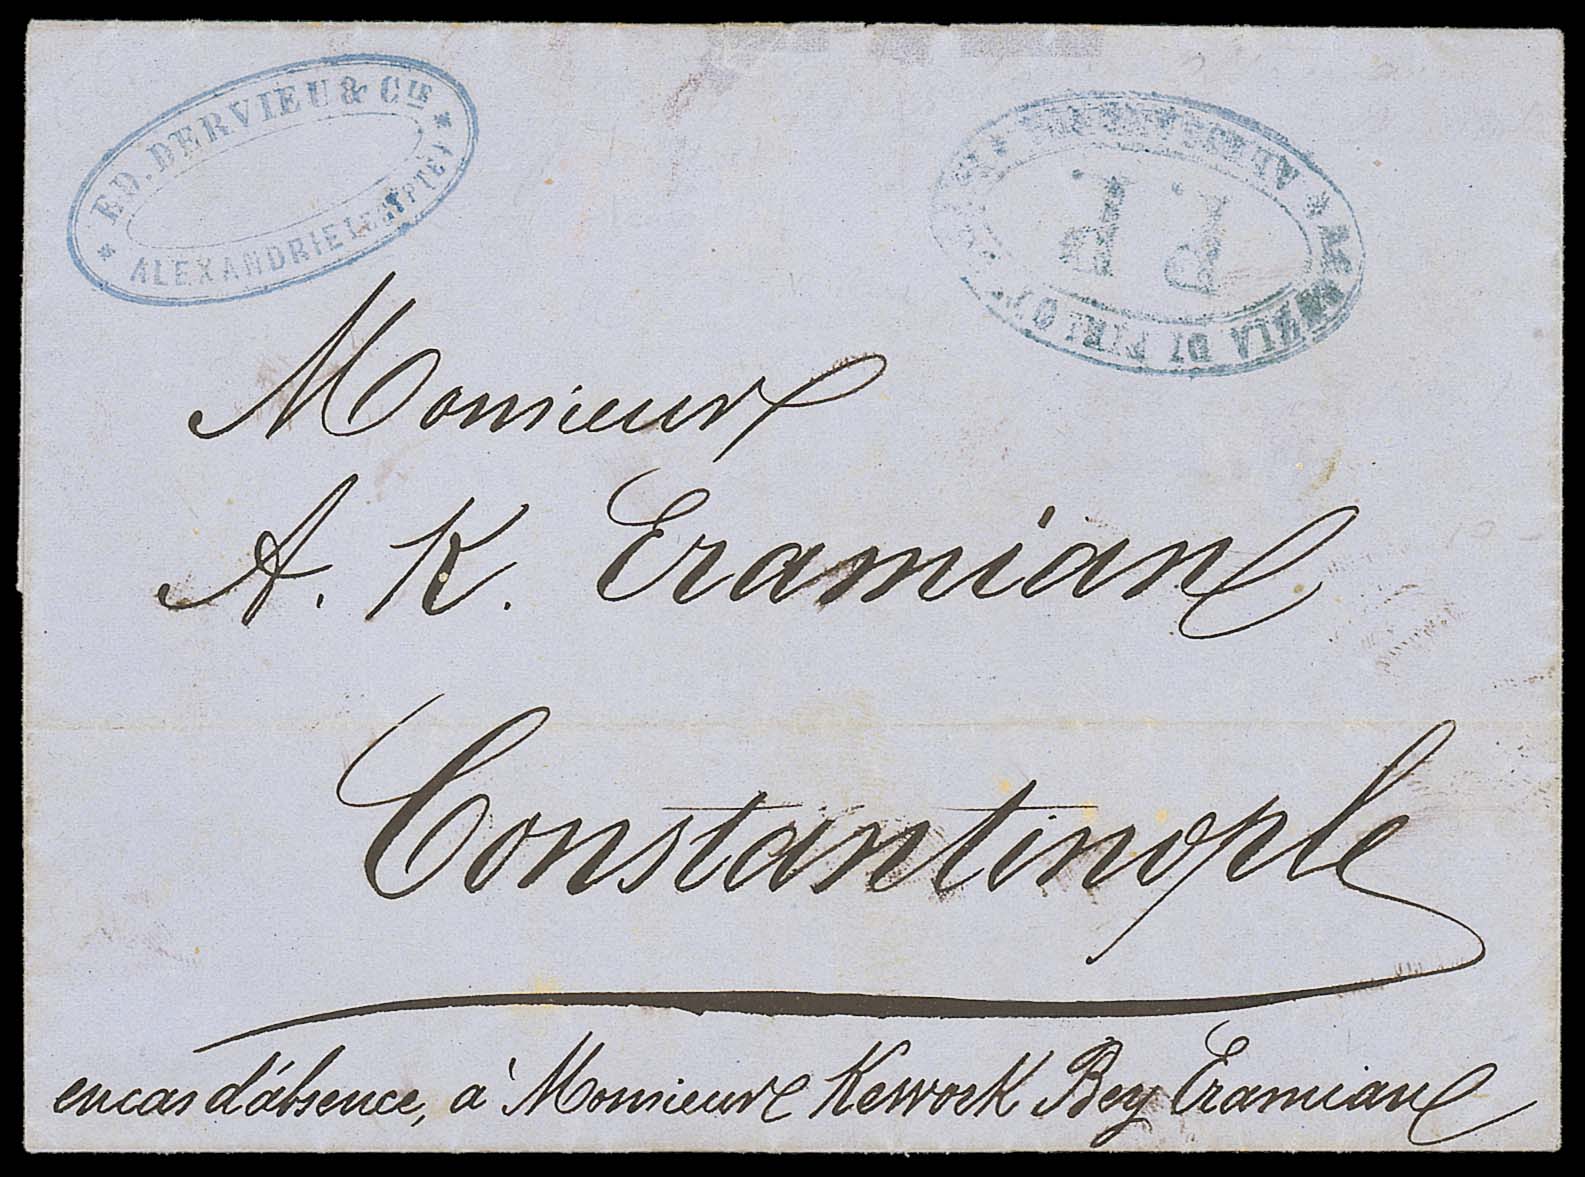 ED. DERVIEU & CIE
ALEXANDRIE (EGYPTE)
P. P.
DI PIROSCAFI
Monsieur
A. K. Eramian
Constantinople
en cas d'absence, à Monsieur Kework Bey Eramian